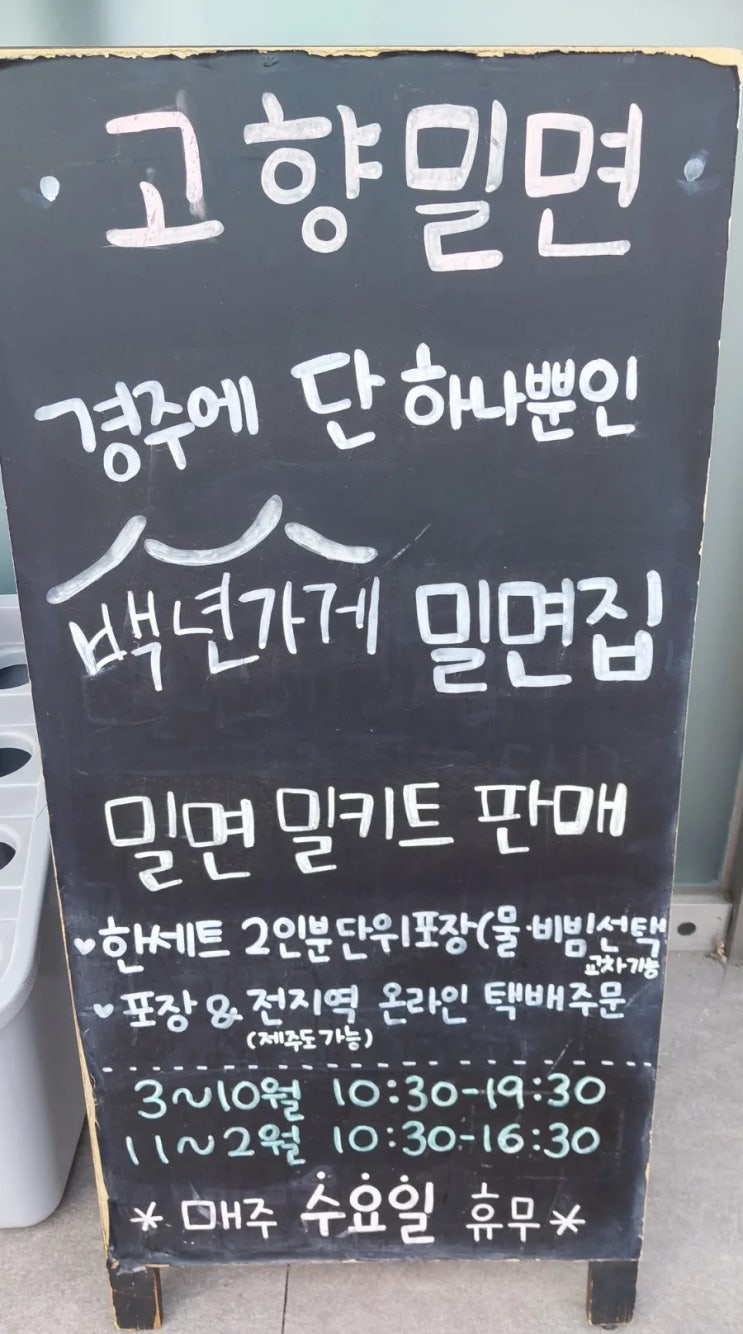 · 고향밀면 ·
경주에 단 하나뿐인
백년가게 밀면집
밀면 밀키트 판매
♥ 한세트 2인분단위포장(물·비빔선택
교차가능
♥ 포장 & 전지역 온라인 택배주문
(제주도가능)
3~10월 10:30-19:30
11~2월 10:30-16:30
* 매주 수요일 휴무 *